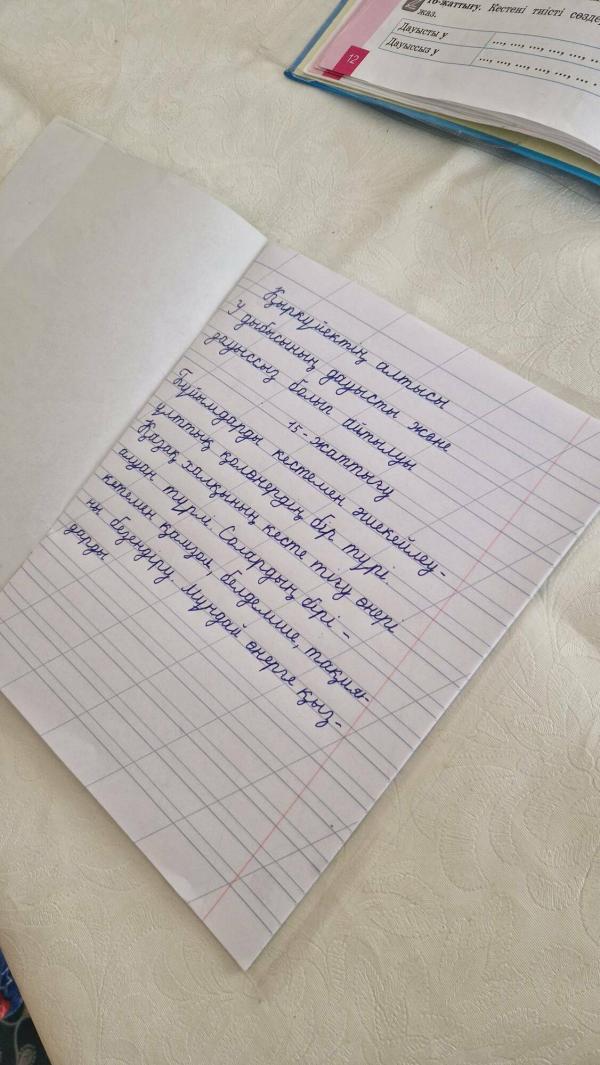 16-жаттығу. Кестені тиісті
жаз.
Дауысты у ..., ..., ..., ..., ...,
Дауыссыз у ..., ..., ..., ..., ...,
12
Қыркүйектің алтысы
У дыбысының дауысты және
дауыссыз болып айтылуы
15-жаттығу
Бұйымдарды кестемен әшекейлеу-
ұлттық қолөнердің бір түрі.
Қазақ халқының кесте тігу өнері
алуан түрлі. Солардың бірі -
кетемен қамзол, белдемше, тақия-
ны безендіру. Мұндай өнерге қыз-
дарды